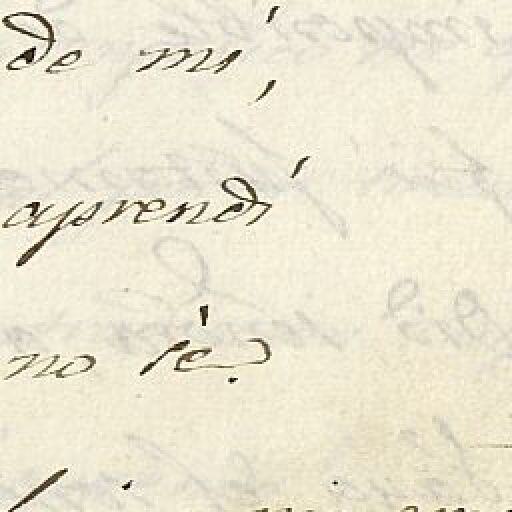 de mí,
aprendí
no sé?